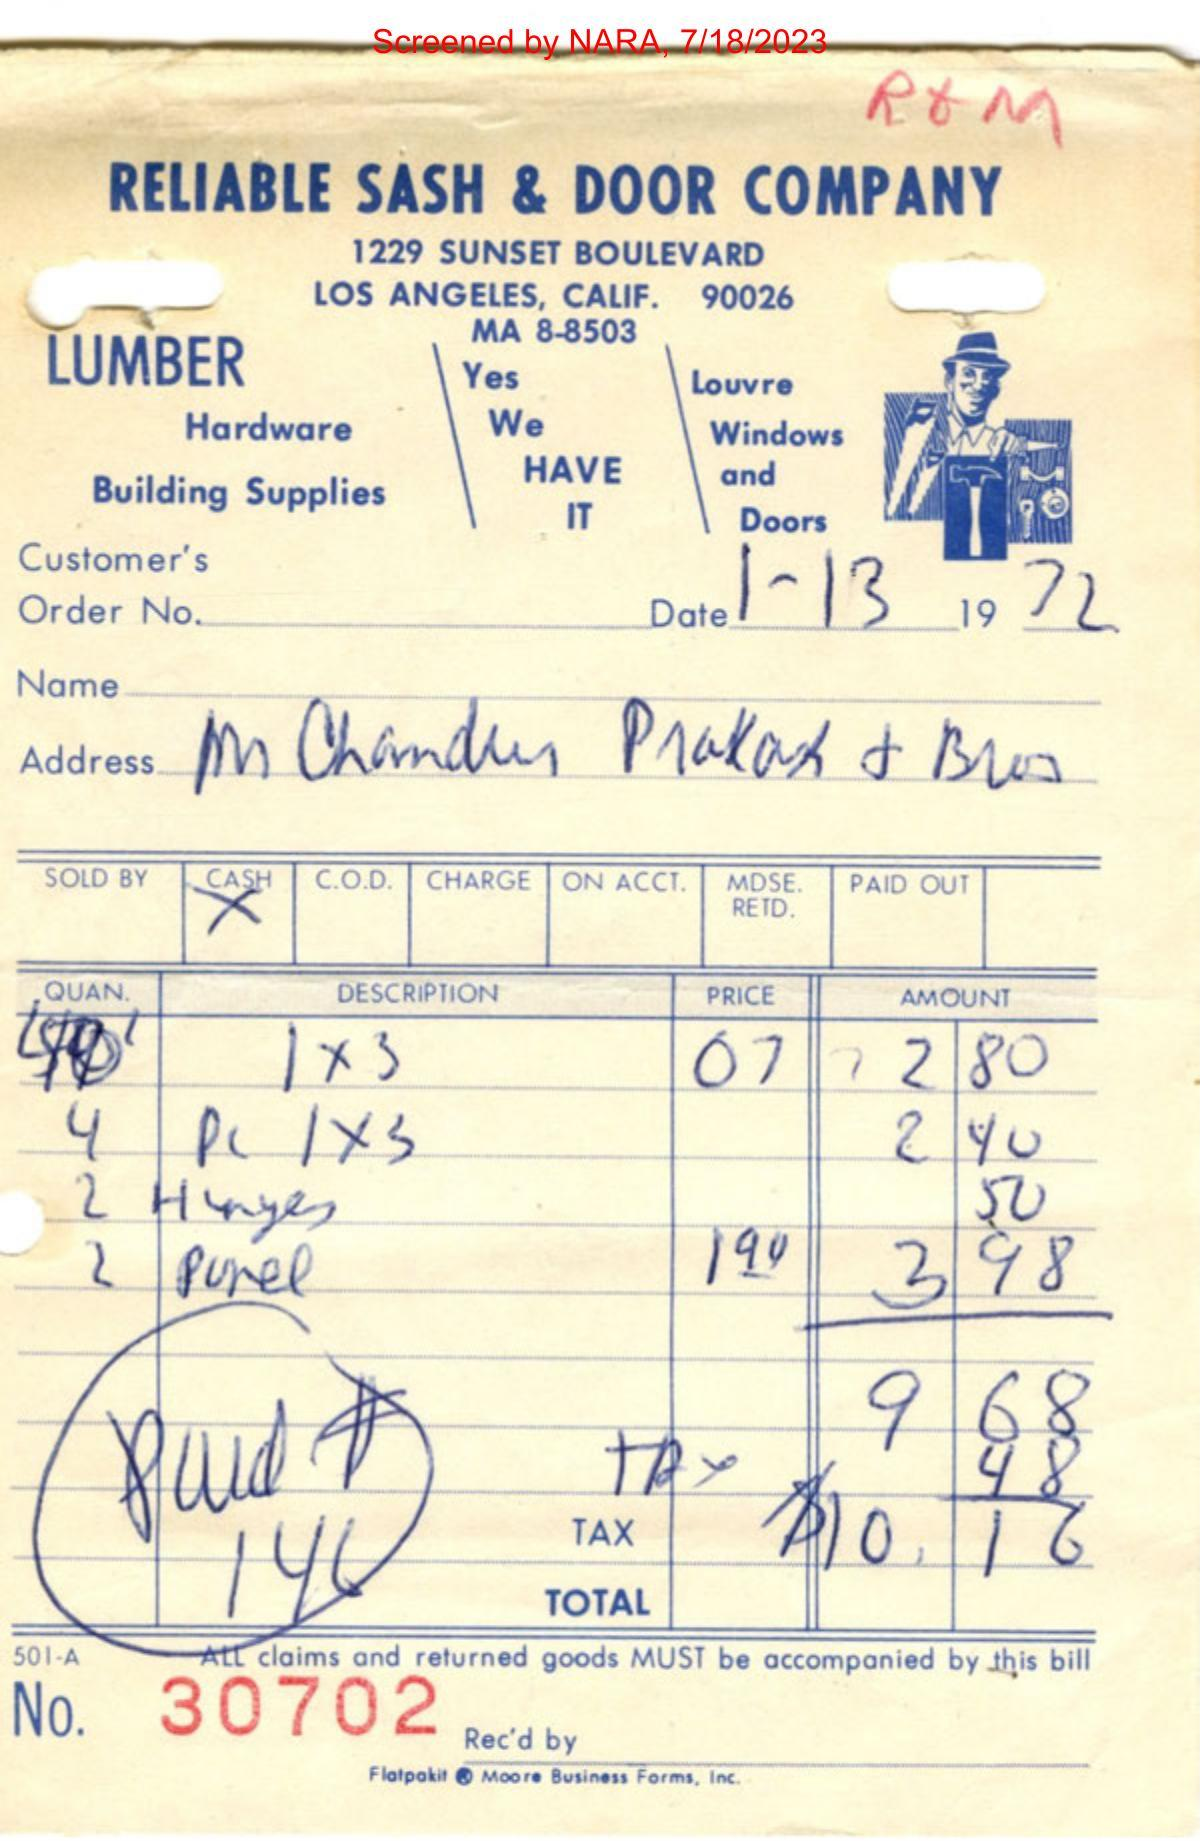 Screened by NARA, 7/18/2023
R & M
RELIABLE SASH & DOOR COMPANY
1229 SUNSET BOULEVARD
LOS ANGELES, CALIF. 90026
MA 8-8503
LUMBER
Hardware
Building Supplies
Yes
We
HAVE
IT
Louvre
Windows
and
Doors
Customer's
Order No. Date 1-13 19 72
Name
Address Mr Chander Prakash & Bros
SOLD BY CASH X C.O.D. CHARGE ON ACCT. MDSE. RETD. PAID OUT
QUAN. DESCRIPTION PRICE AMOUNT
1 x 3 07 2 80
4 Pc 1 x 3 2 40
2 Hinges 50
2 Panel 3 98
9 68
TAX 48
Paid #
146
TAX $10.16
TOTAL
501-A ALL claims and returned goods MUST be accompanied by this bill
No. 30702 Rec'd by
Flatpakit ® Moore Business Forms, Inc.